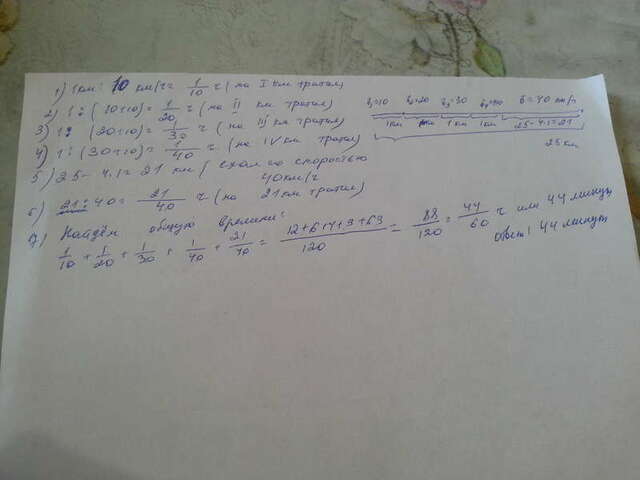 1) 1км: 10 км/ч = 1/10 ч (на I км тратил)
2) 1:(10+10) = 1/20 ч (на II км тратил)
3) 1: (20+10) = 1/30 ч (на III км тратил)
4) 1:(30+10) = 1/40 ч (на IV км тратил)
5) 25-4·1= 21 км ехал со скоростью
40км/ч
6) 21:40= 21/40 ч (на 21км тратил)
7) Найдём общую времени:
1/10 + 1/20 + 1/30 + 1/40 + 21/40 = 12+6+4+3+63/120 = 88/120 = 44/60 ч или 44 минут
Ответ: 44 минут
v₁=10 v₂=20 v₃=30 v₄=40 v=40 км/ч
1км 1км 1км 1км 25-4·1=21
25км